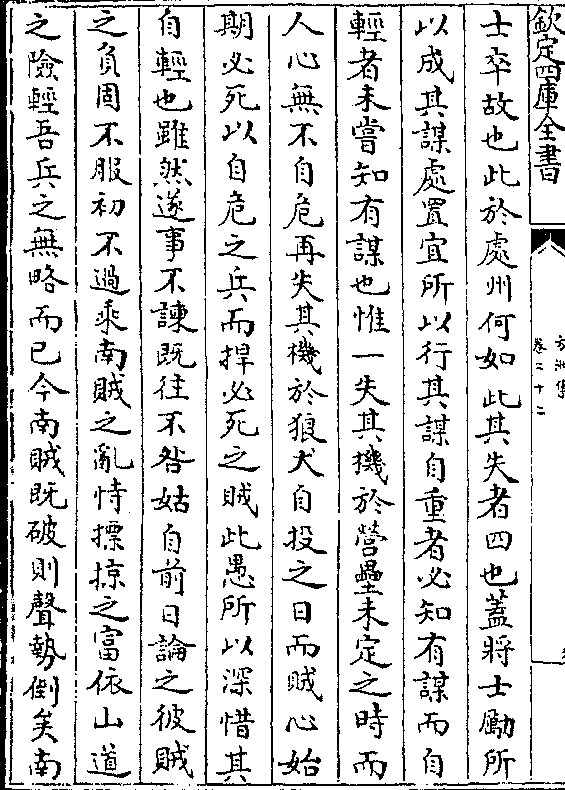 欽定四庫全書
卷二十二
士卒故也此於處州何如此其失者四也蓋將士勵所
以成其謀處置宜所以行其謀自重者必知有謀而自
輕者未嘗知有謀也惟一失其機於營壘未定之時而
人心無不自危再失其機於狼犬自投之日而賊心始
期必死以自危之兵而捍必死之賊此愚所以深惜其
自輕也雖然遂事不諫既往不咎姑自前日論之彼賊
之負固不服初不過乘南賊之亂恃摽掠之富依山道
之險輕吾兵之無略而已今南賊既破則聲勢倒矣南